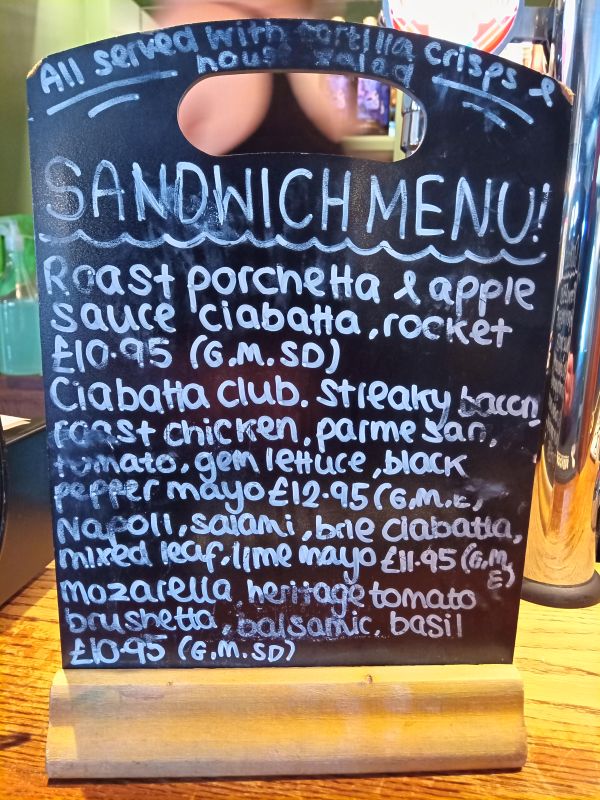 All served with tortilla crisps &
house salad
SANDWICH MENU!
Roast porchetta & apple
sauce ciabatta, rocket
£10.95 (G.M.SD)
Ciabatta club. streaky bacon
roast chicken, parmesan,
tomato, gem lettuce, black
pepper mayo £12.95 (G.M.E)
Napoli, salami, brie ciabatta,
mixed leaf, lime mayo £11.95 (G.M.
E)
mozarella heritage tomato
brushetta, balsamic, basil
£10.95 (G.M.SD)